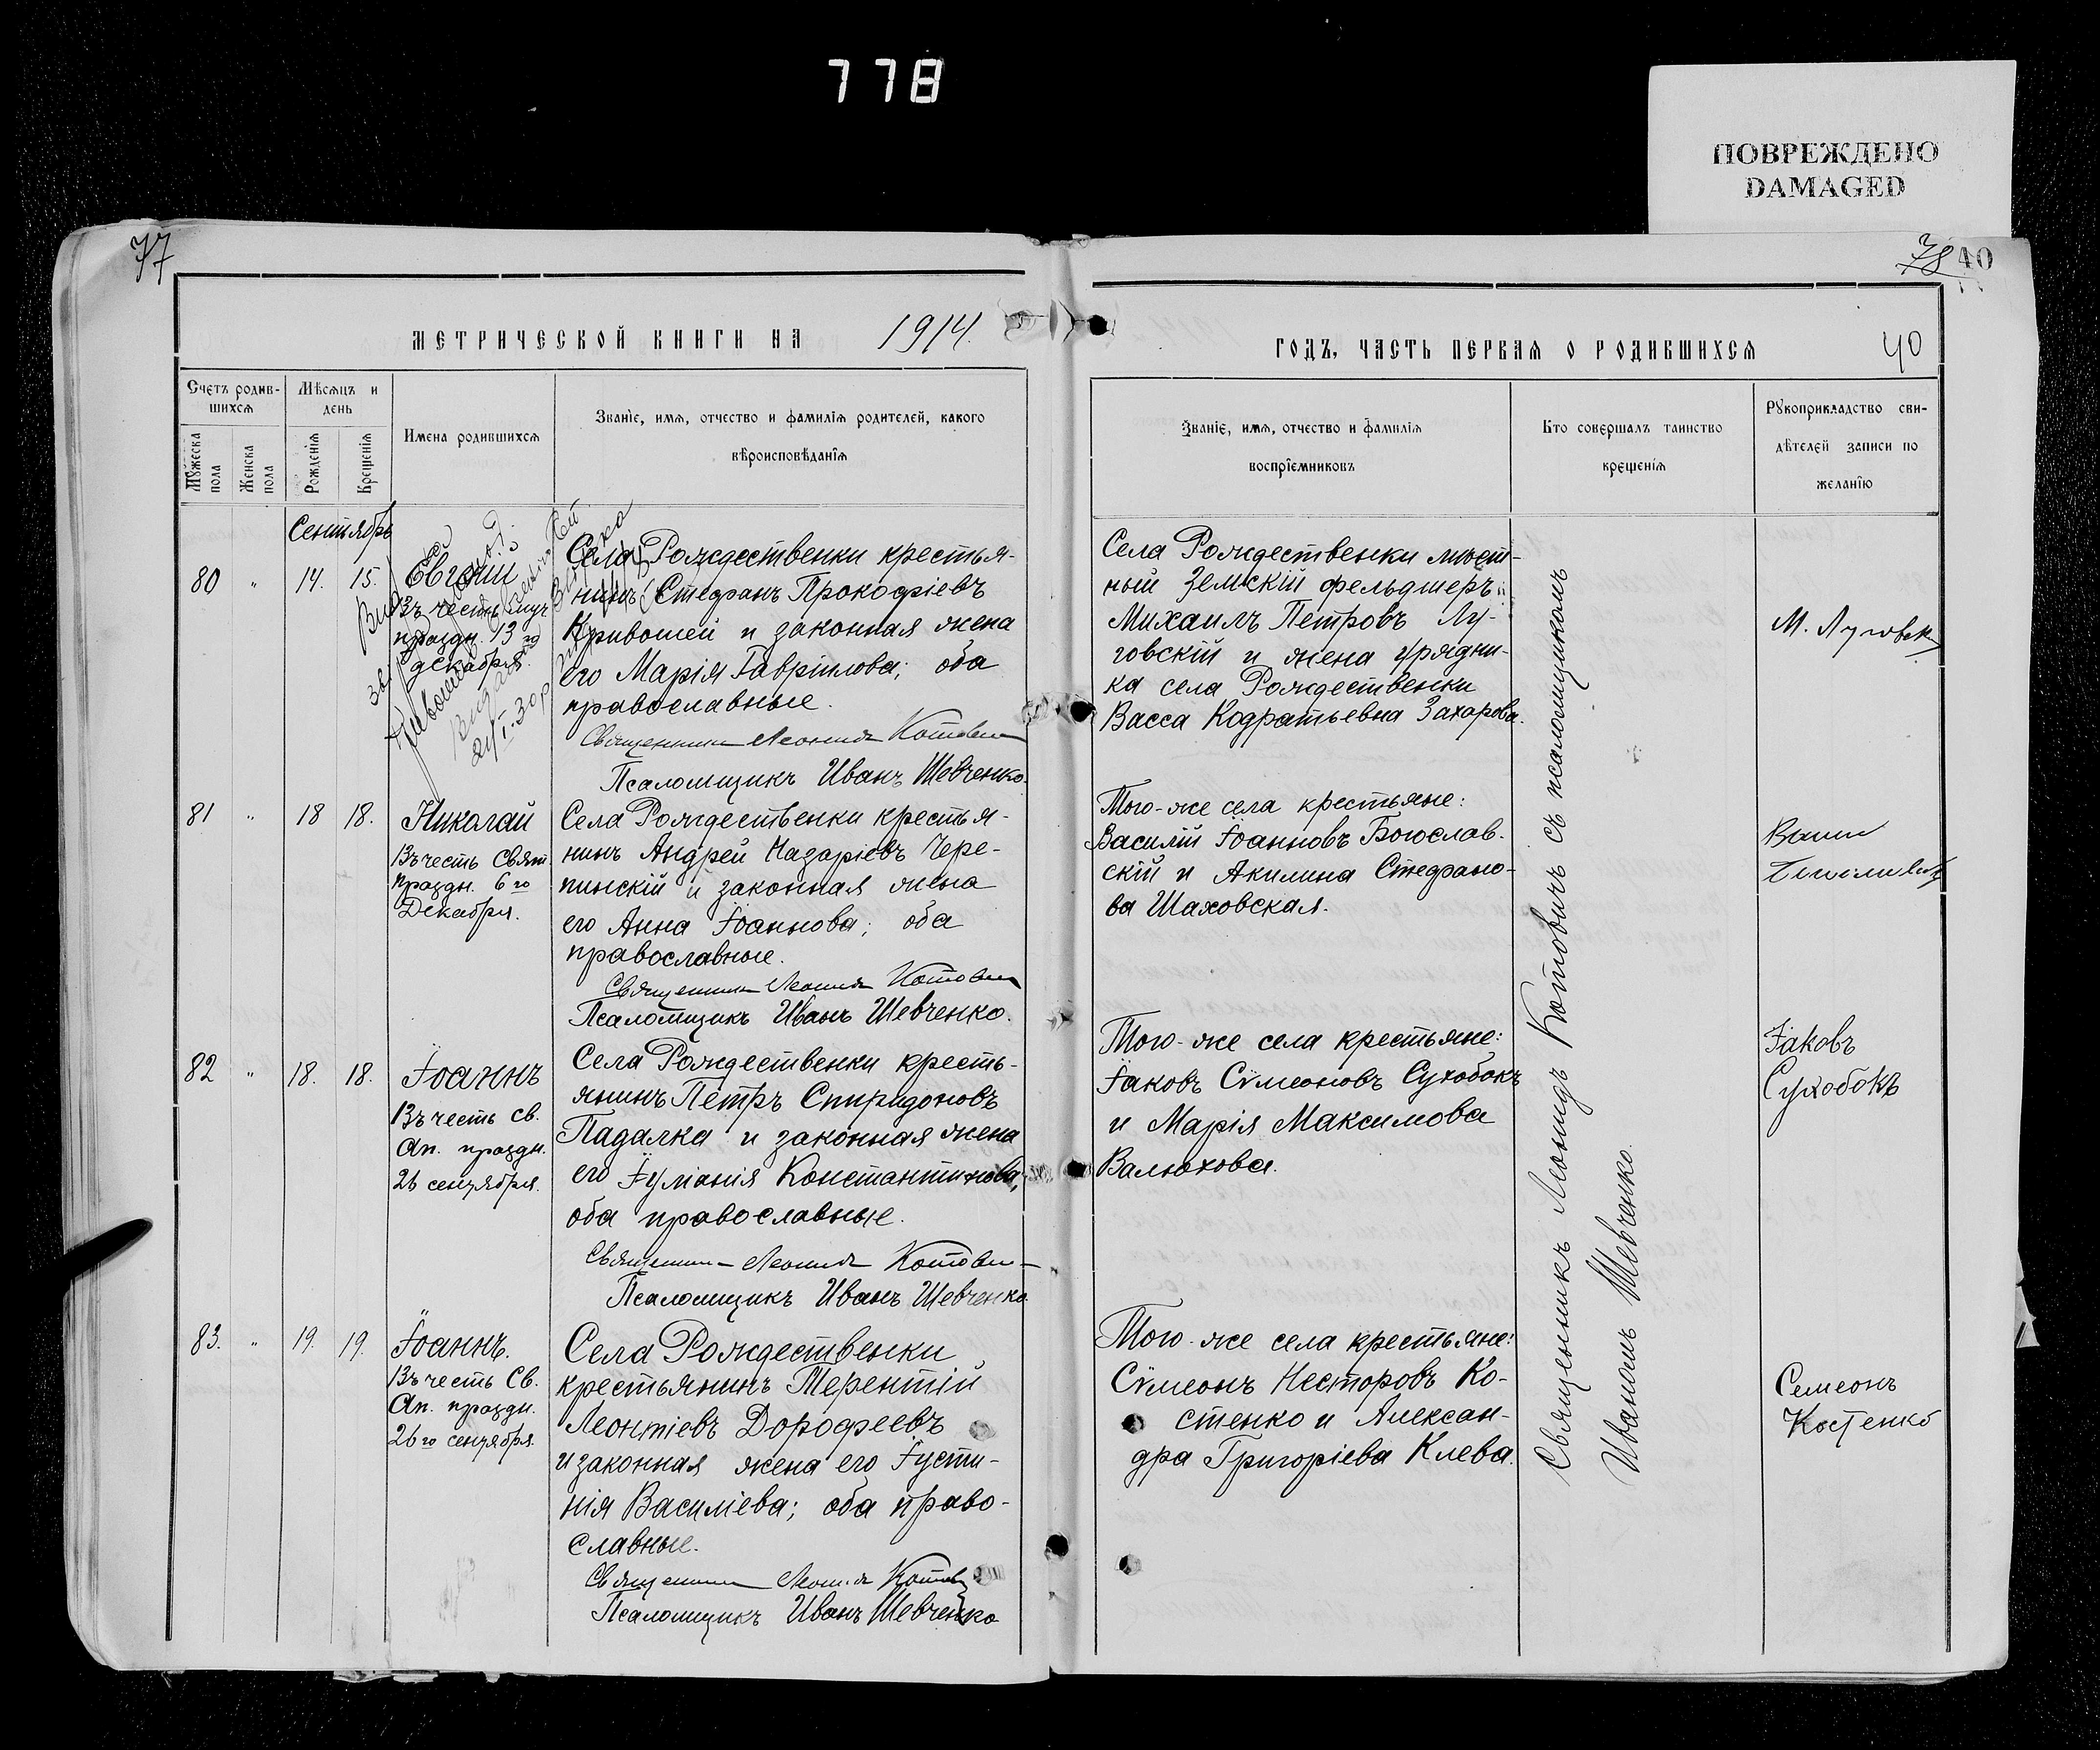 778
ПОВРЕЖДЕНО
DAMAGED
77
МЕТРИЧЕСКОЙ КНИГИ НА 1914.
Счетъ родив-
шихся
Мѣсяцъ и
день
Мужеска
пола
Женска
пола
Рожденія
Крещенія
Имена родившихся
Званіе, имя, отчество и фамилія родителей, какого
вѣроисповѣданія
Сентябрь
80 " 14. 15.
Евгеній
Въ честь муч.
праздн. 13го
декабря.
Села Рождественки крестья-
нинъ Стефанъ Прокофіевъ
Кривошей и законная жена
его Марія Гавріилова; оба
православные.
Священникъ Леонидъ Котович
Псаломщикъ Иванъ Шевченко.
81 " 18 18.
Николай
Въ честь Свят.
праздн. 6го
Декабря.
Села Рождественки крестья-
нинъ Андрей Назаріевъ Чере-
пинскій и законная жена
его Анна Іоаннова; оба
православные.
Священникъ Леонидъ Котович
Псаломщикъ Иванъ Шевченко.
82 " 18. 18.
Іоаннъ
Въ честь Св.
Ап. праздн.
26 сентября.
Села Рождественки кресть-
янинъ Петръ Спиридоновъ
Падалка и законная жена
его Іуліанія Константинова;
оба православные.
Священникъ Леонидъ Котович
Псаломщикъ Иванъ Шевченко
83. " 19. 19.
Іоаннъ.
Въ честь Св.
Ап. праздн.
26го сентября.
Села Рождественки
крестьянинъ Терентій
Леонтіевъ Дорофеевъ
и законная жена его Іусти-
нія Василіева; оба право-
славные.
Священникъ Леонидъ Котович
Псаломщикъ Иванъ Шевченко
78 40
ГОДЪ, ЧАСТЬ ПЕРВАЯ О РОДИВШИХСЯ
40
Званіе, имя, отчество и фамилія
воспріемниковъ
Кто совершалъ таинство
крещенія
Рукоприкладство сви-
дѣтелей записи по
желанію
Села Рождественки мѣст-
ный Земскій фельдшеръ
Михаилъ Петровъ Лу-
говскій и жена урядни-
ка села Рождественки
Васса Кодратьевна Захарова.
М. Луговск
Того-же села крестьяне:
Василій Іоанновъ Богослав-
скій и Акилина Стефано-
ва Шаховская.
Того-же села крестьяне:
Іаковъ Сѵмеоновъ Сухобокъ
и Марія Максимова
Валюхова.
Іаковъ
Сухобокъ
Того-же села крестьяне:
Сѵмеонъ Несторовъ Ко-
стенко и Алексан-
дра Григоріева Клева.
Семеонъ
Костенко
Священникъ Леонидъ Котовичъ съ псаломщикомъ
Иваномъ Шевченко